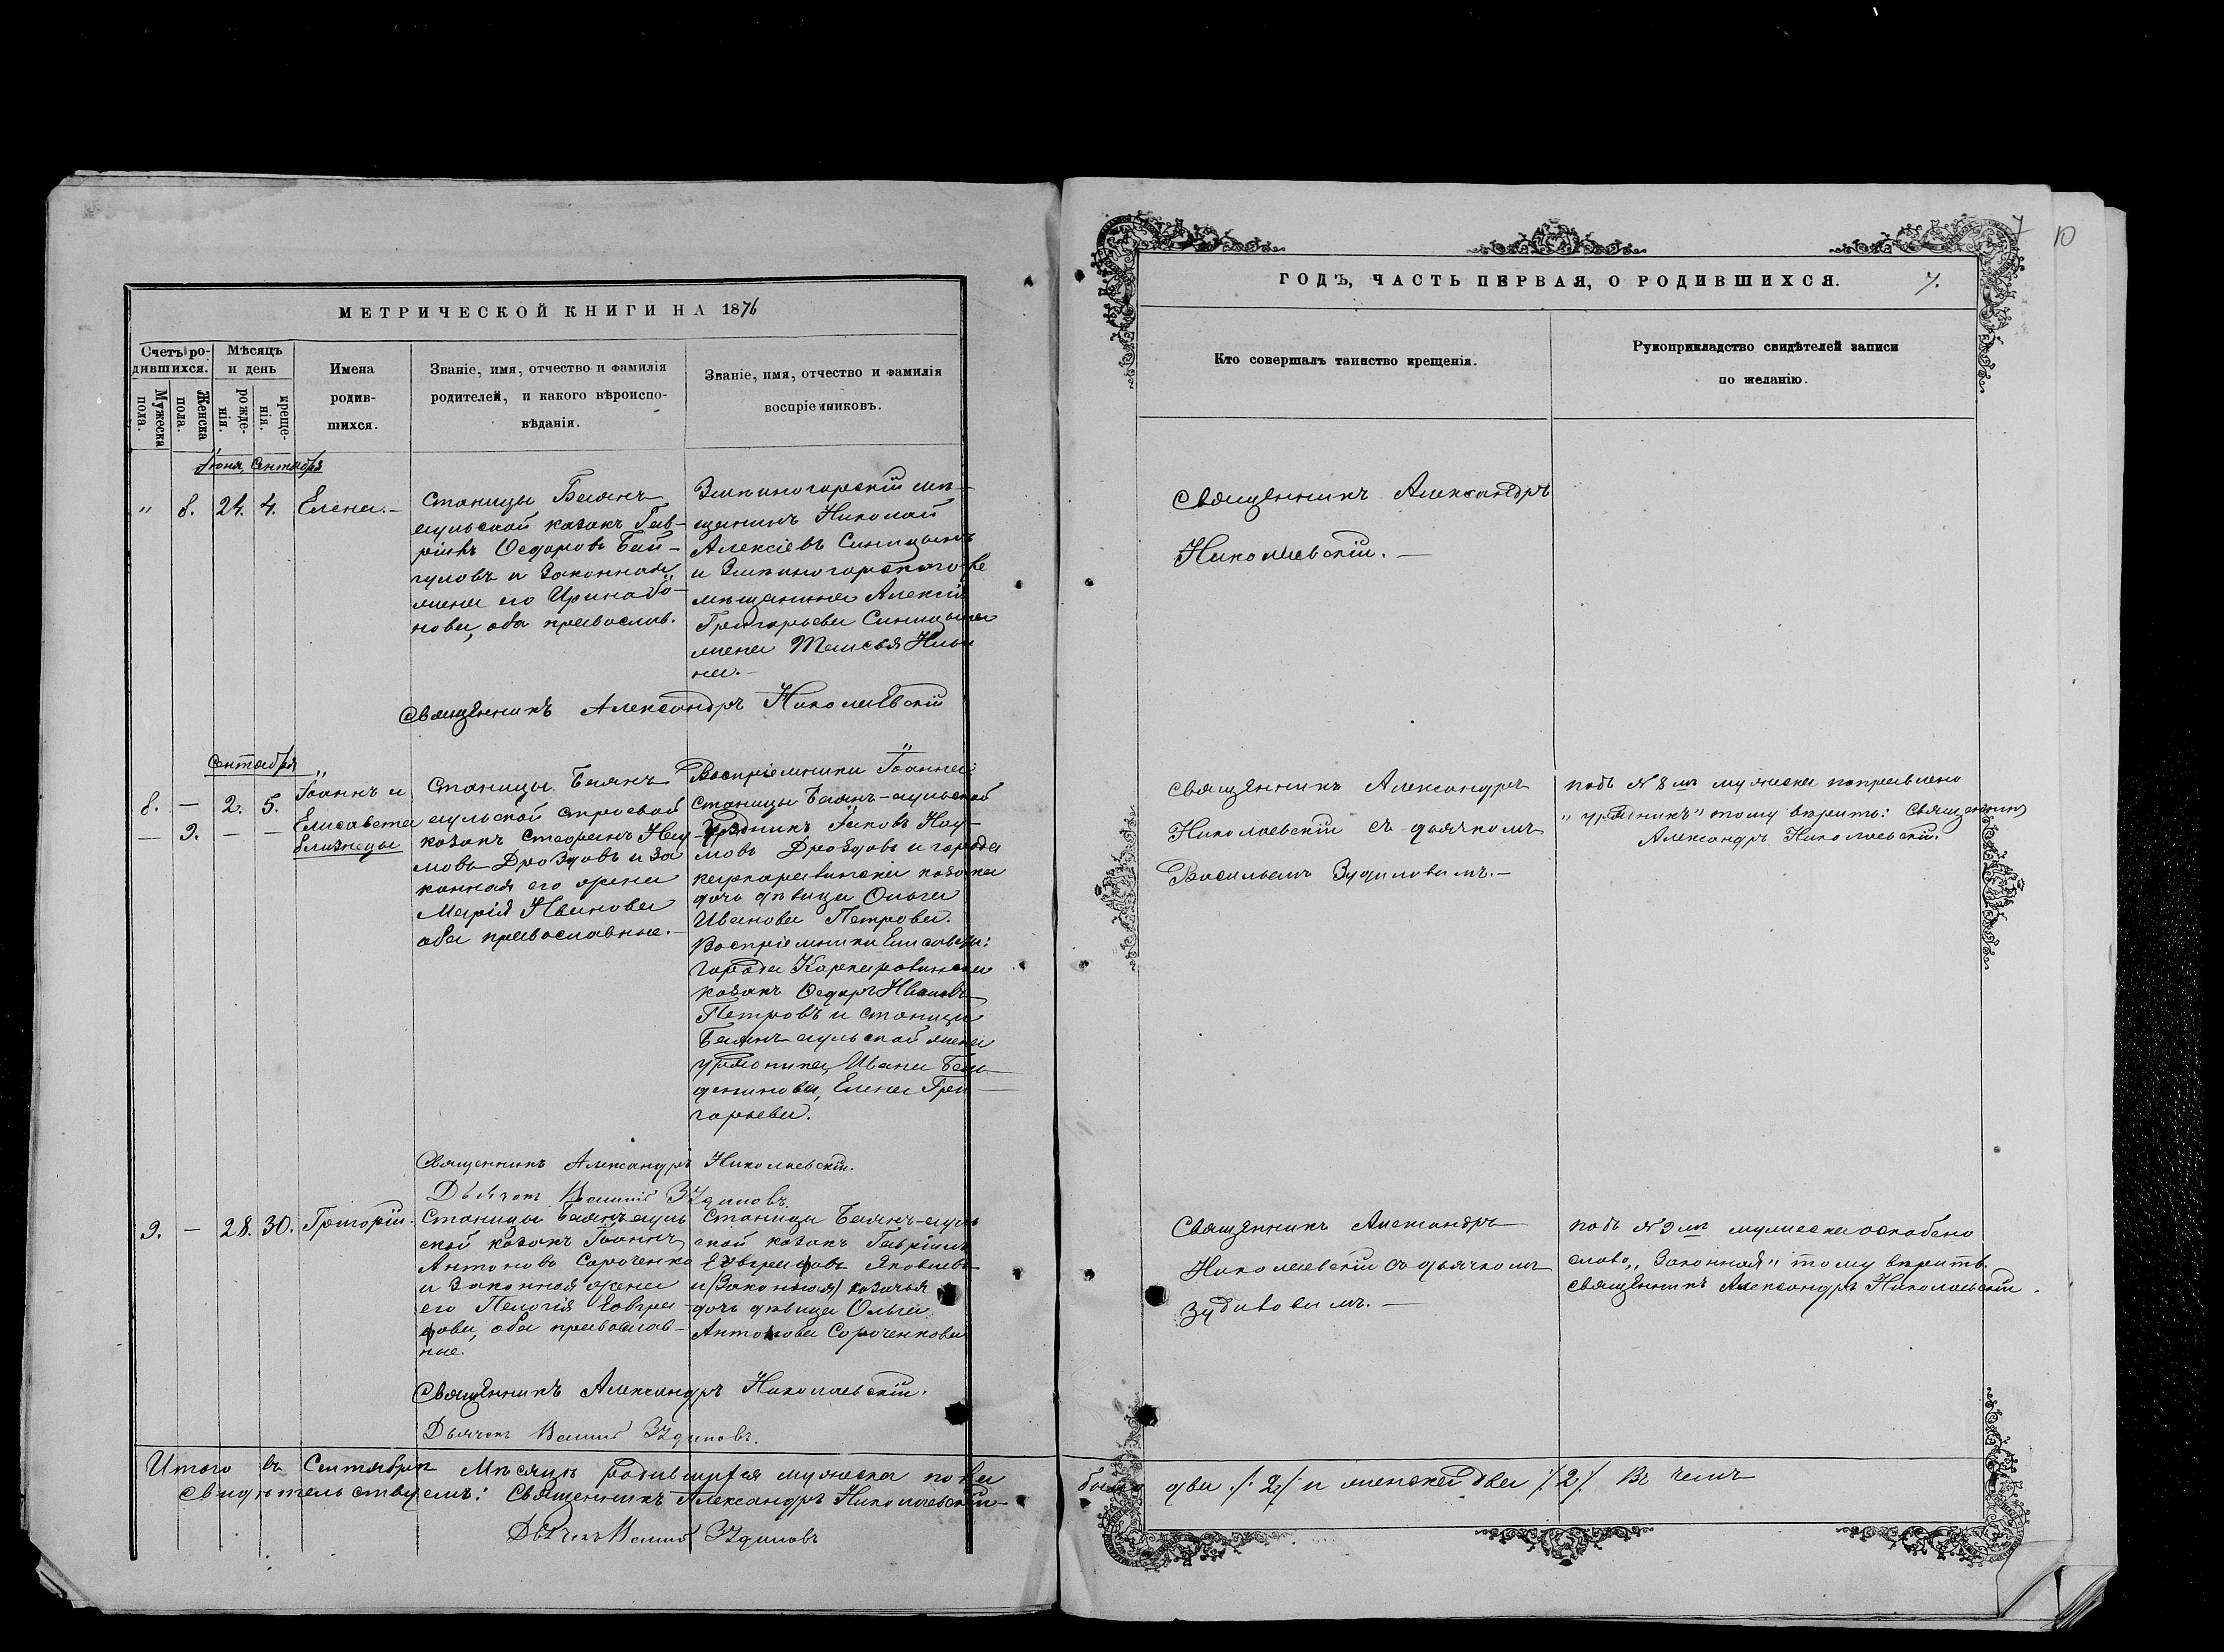 МЕТРИЧЕСКОЙ КНИГИ НА 1876
Счетъ ро-
дившихся.
Мужеска
пола.
Женска
пола.
Мѣсяцъ
и день
рожде-
нія.
креще-
нія.
Имена
родив-
шихся.
Званіе, имя, отчество и фамилія
родителей, и какого вѣроиспо-
вѣданія.
Званіе, имя, отчество и фамилія
воспріемниковъ.
Іюня, Сентября
" 8. 24. 4. Елена.-
Станицы Баянъ
аульской казакъ Гав-
ріилъ Ѳедоровъ Бай-
гуловъ и законная
жена его Ирина
нова, оба православ.
Змѣиногорскій мѣ-
щанинъ Николай
Алексіевъ Синицынъ
и Змѣиногорского
мѣщанина Алексія
Григорьева Синицына
жена Таисья Ильи
на.-
Священникъ Александръ Николаевскій
Сентября
8. — 2. 5.
— 9. — —
Іоаннъ и
Елисавета
близнецы
Станицы Баянъ
аульской строевой
казакъ Стефанъ Нау-
мовъ Дроздовъ и за
конная его жена
Марія Иванова
оба православные.-
Воспріемники Іоанна:
Станицы Баянъ-аульской
Урядникъ Іаковъ Нау-
мовъ Дроздовъ и города
Каркаралинска казака
дочь дѣвица Ольга
Иванова Петрова.
Воспріемники Елисаветы:
города Каркаралинска
казакъ Ѳедоръ Ивановъ
Петровъ и станицы
Баянъ-аульской жена
урядника, Ивана
Елена Гри
горьева.
Священникъ Александръ Николаевскій.
Дьячокъ Василій Зудиловъ.
9. — 28. 30. Григорій.
Станицы Баянъ-ауль
ской казакъ Іоаннъ
Антоновъ Сороченко
и законная жена
его Пелагія Евгра
фова, оба православ-
ные.
Станицы Баянъ-ауль
ской казакъ Гавріилъ
Евграфовъ Яковлевъ
и (Законная) козачья
дочь дѣвица Ольга
Антонова Сороченкова
Священникъ Александръ Николаевскій.
Дьячокъ Василій Зудиловъ.
Итого въ Сентябрѣ Мѣсяцѣ родившихся мужеска пола
свидѣтельствуемъ: Священникъ Александръ Николаевскій
Дьячокъ Василій Зудиловъ
ГОДЪ, ЧАСТЬ ПЕРВАЯ, О РОДИВШИХСЯ. 7.
7 10
Кто совершалъ таинство крещенія.
Рукоприкладство свидѣтелей записи
по желанію.
Священникъ Александръ
Николаевскій.—
Священникъ Александръ
Николаевскій съ дьячкомъ
Васильемъ Зудиловымъ.—
подъ №8мъ мужеска поправлено
"урядникъ" тому вѣрить: Священникъ
Александръ Николаевскій.
Священникъ Александръ
Николаевскій съ дьячкомъ
Зудиловымъ.—
подъ №9мъ мужеска оскоблено
слово „Законная" тому вѣрить.
Священникъ Александръ Николаевскій.
было два /:2:/ и женска два /:2:/. Въ чемъ